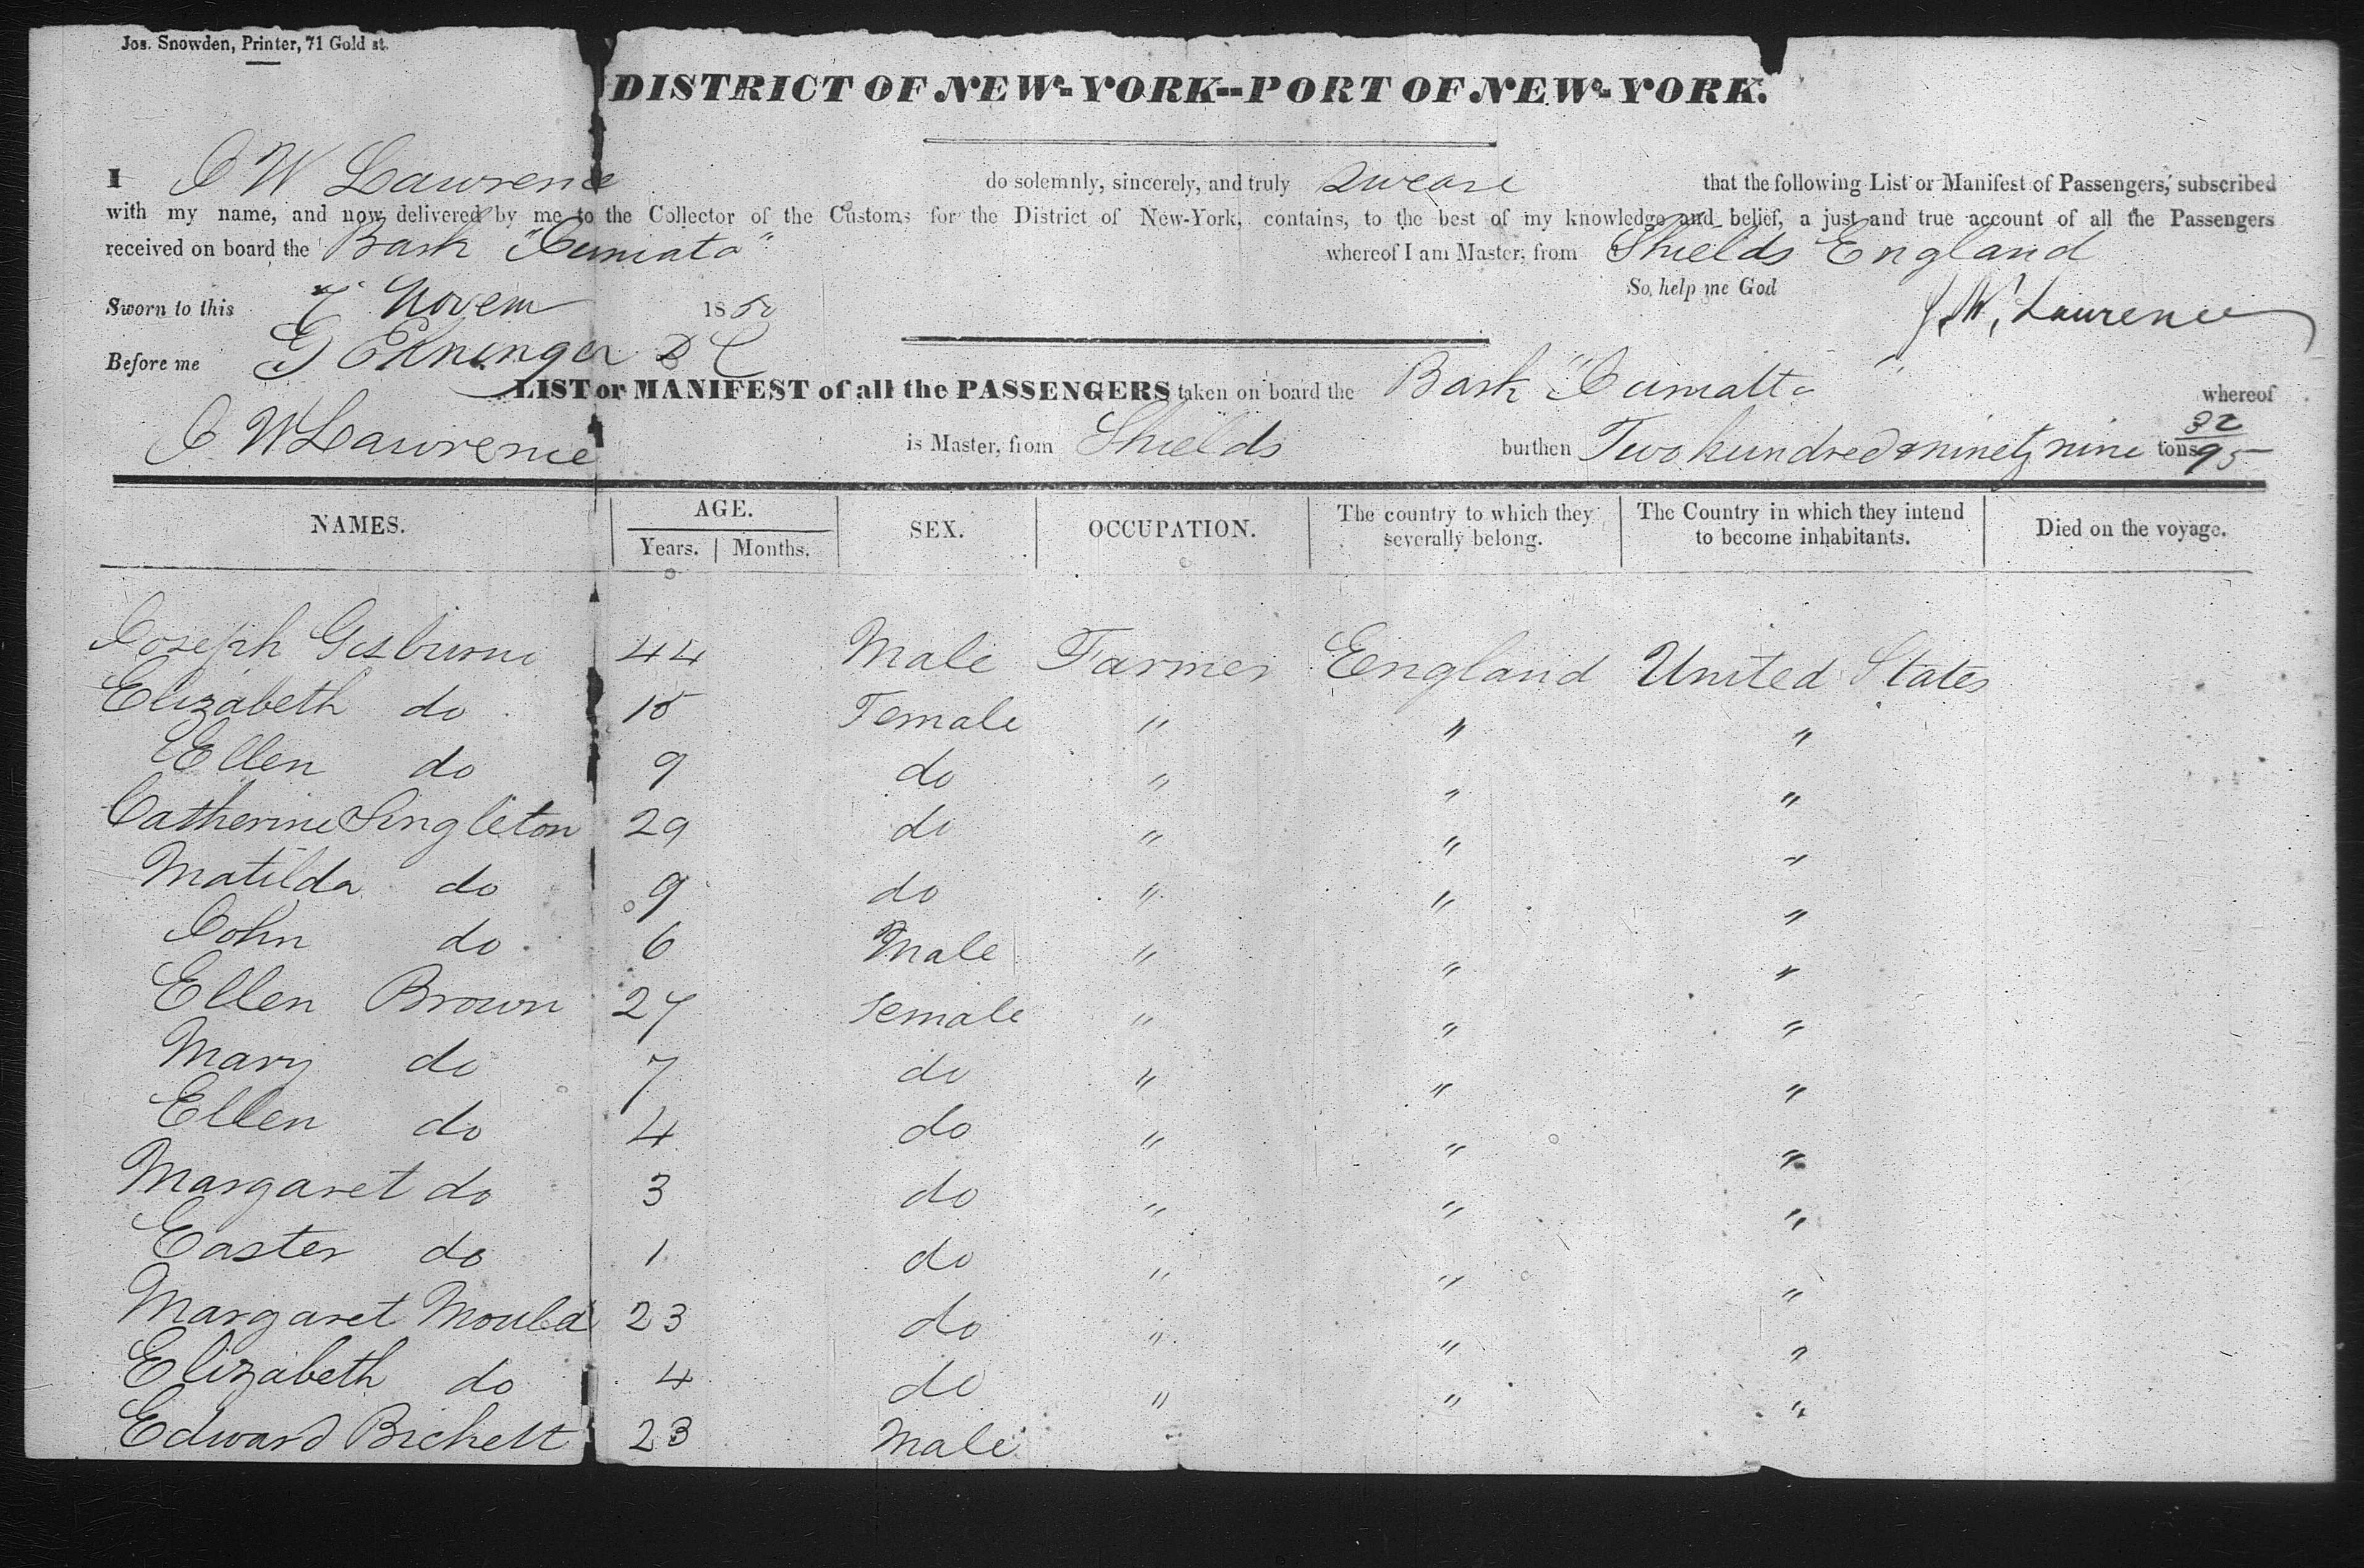 Jos. Snowden, Printer, 71 Gold st.
DISTRICT OF NEW-YORK--PORT OF NEW-YORK.
I J W Lawrence do solemnly, sincerely, and truly swear that the following List or Manifest of Passengers, subscribed
with my name, and now delivered by me to the Collector of the Customs for the District of New-York, contains, to the best of my knowledge and belief, a just and true account of all the Passengers
received on board the Bark whereof I am Master, from Shields England
So help me God
Sworn to this 7 Novem 1850 J. W. Lawrence
Before me D C
LIST or MANIFEST of all the PASSENGERS taken on board the Bark whereof
J. W Lawrence is Master, from Shields burthen Two hundred & ninety nine 32/95 tons
NAMES. AGE. Years. Months. SEX. OCCUPATION. The country to which they severally belong. The Country in which they intend to become inhabitants. Died on the voyage.
Joseph Gisburne 44 Male Farmer England United States
Elizabeth do 15 Female " " "
Ellen do 9 do " " "
Catherine Singleton 29 do " " "
Matilda do 9 do " " "
John do 6 Male " " "
Ellen Brown 27 Female " " "
Mary do 7 do " " "
Ellen do 4 do " " "
Margaret do 3 do " " "
Easter do 1 do " " "
Margaret Mould 23 do " " "
Elizabeth do 4 do " " "
Edward Bickett 23 Male